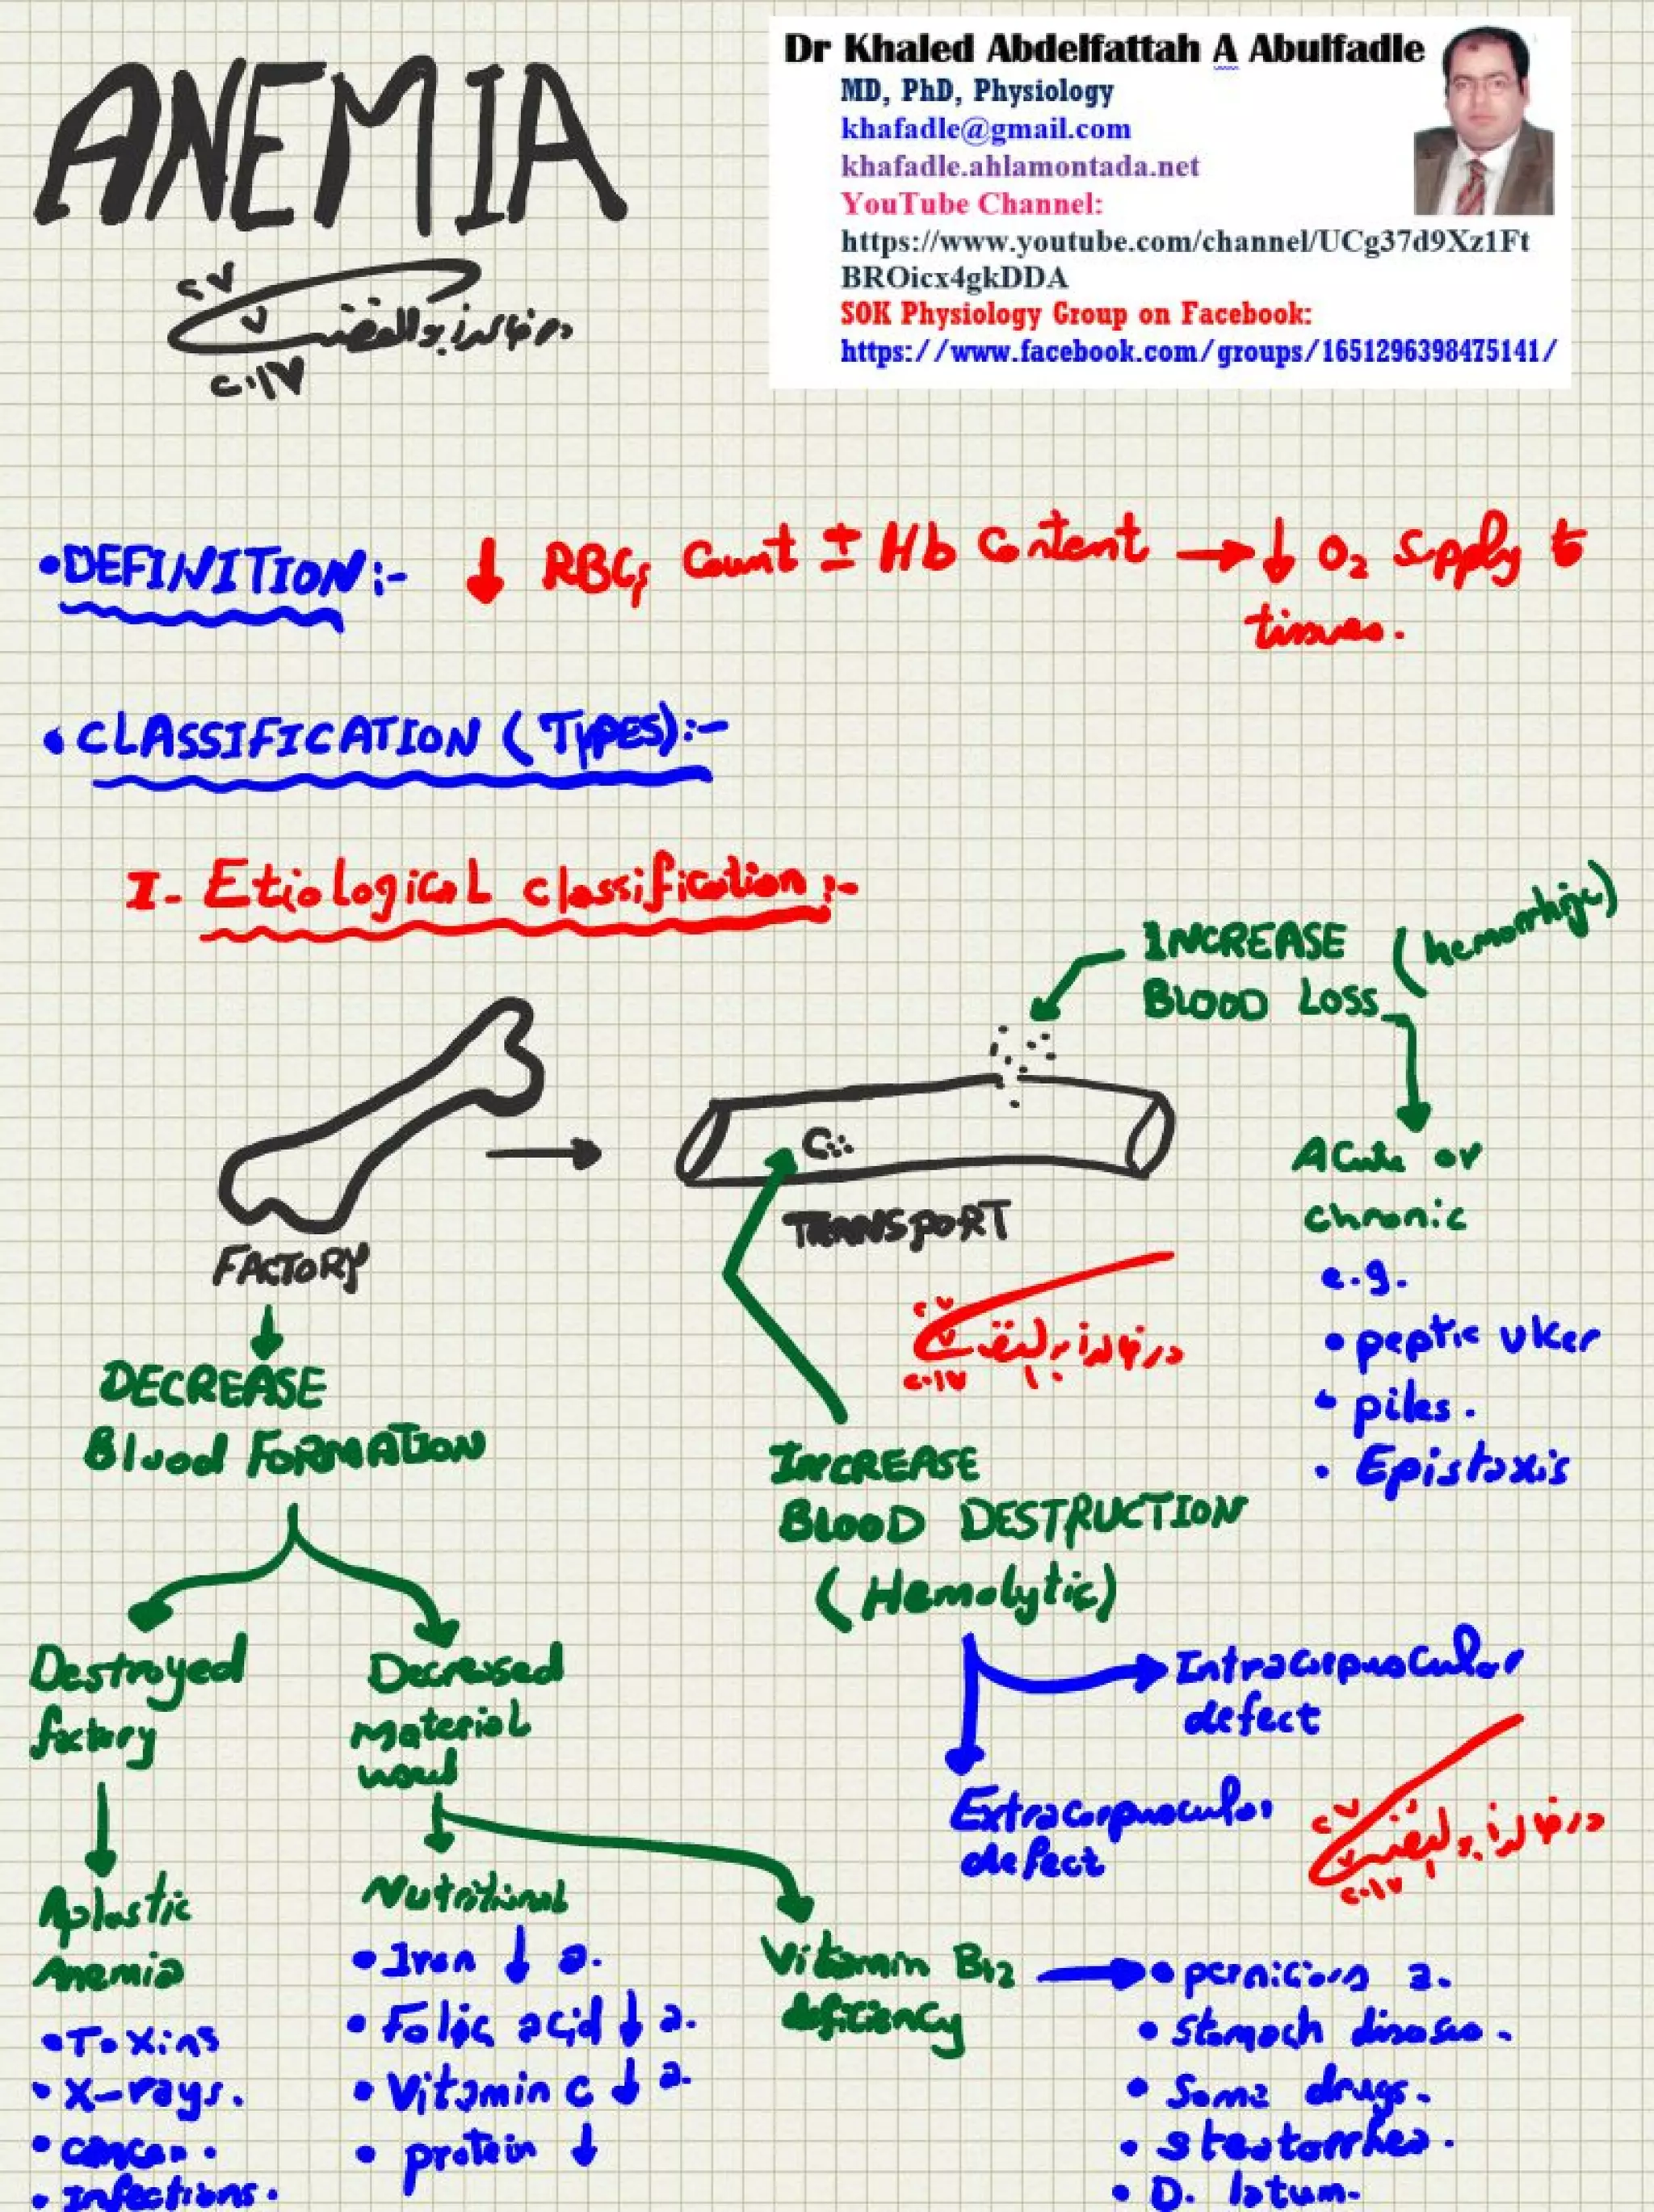 ANEMIA
Dr Khaled Abdelfattah A Abulfadle
MD, PhD, Physiology
khafadle@gmail.com
khafadle.ahlamontada.net
YouTube Channel:
https://www.youtube.com/channel/UCg37d9Xz1Ft
BROicx4gkDDA
SOK Physiology Group on Facebook:
https://www.facebook.com/groups/1651296398475141/
٢٠١٧
• DEFINITION:- ↓ RBCs Count ± Hb Content → ↓ O2 Supply to
tissues.
• CLASSIFICATION (TYPES):-
I- Etiological classification:-
INCREASE (hemorrhgic)
BLOOD LOSS
Acute or
chronic
e.g.
• peptic ulcer
• piles.
• Epistaxis
FACTORY
TRANSPORT
٢٠١٧
DECREASE
Blood FORMATION
INCREASE
BLOOD DESTRUCTION
(Hemolytic)
Intracorpuscular
defect
Extracorpuscular
defect
٢٠١٧
Destroyed
factory
Decreased
material
used
Aplastic
Anemia
• Toxins
• X-rays.
• cancer.
• Infections.
Nutritional
• Iron ↓ a.
• Folic acid ↓ a.
• Vitamin C ↓ a.
• protein ↓
Vitamin B12
deficiency
• pernicious a.
• stomach diseases.
• Some drugs.
• steatorrhea.
• D. latum.